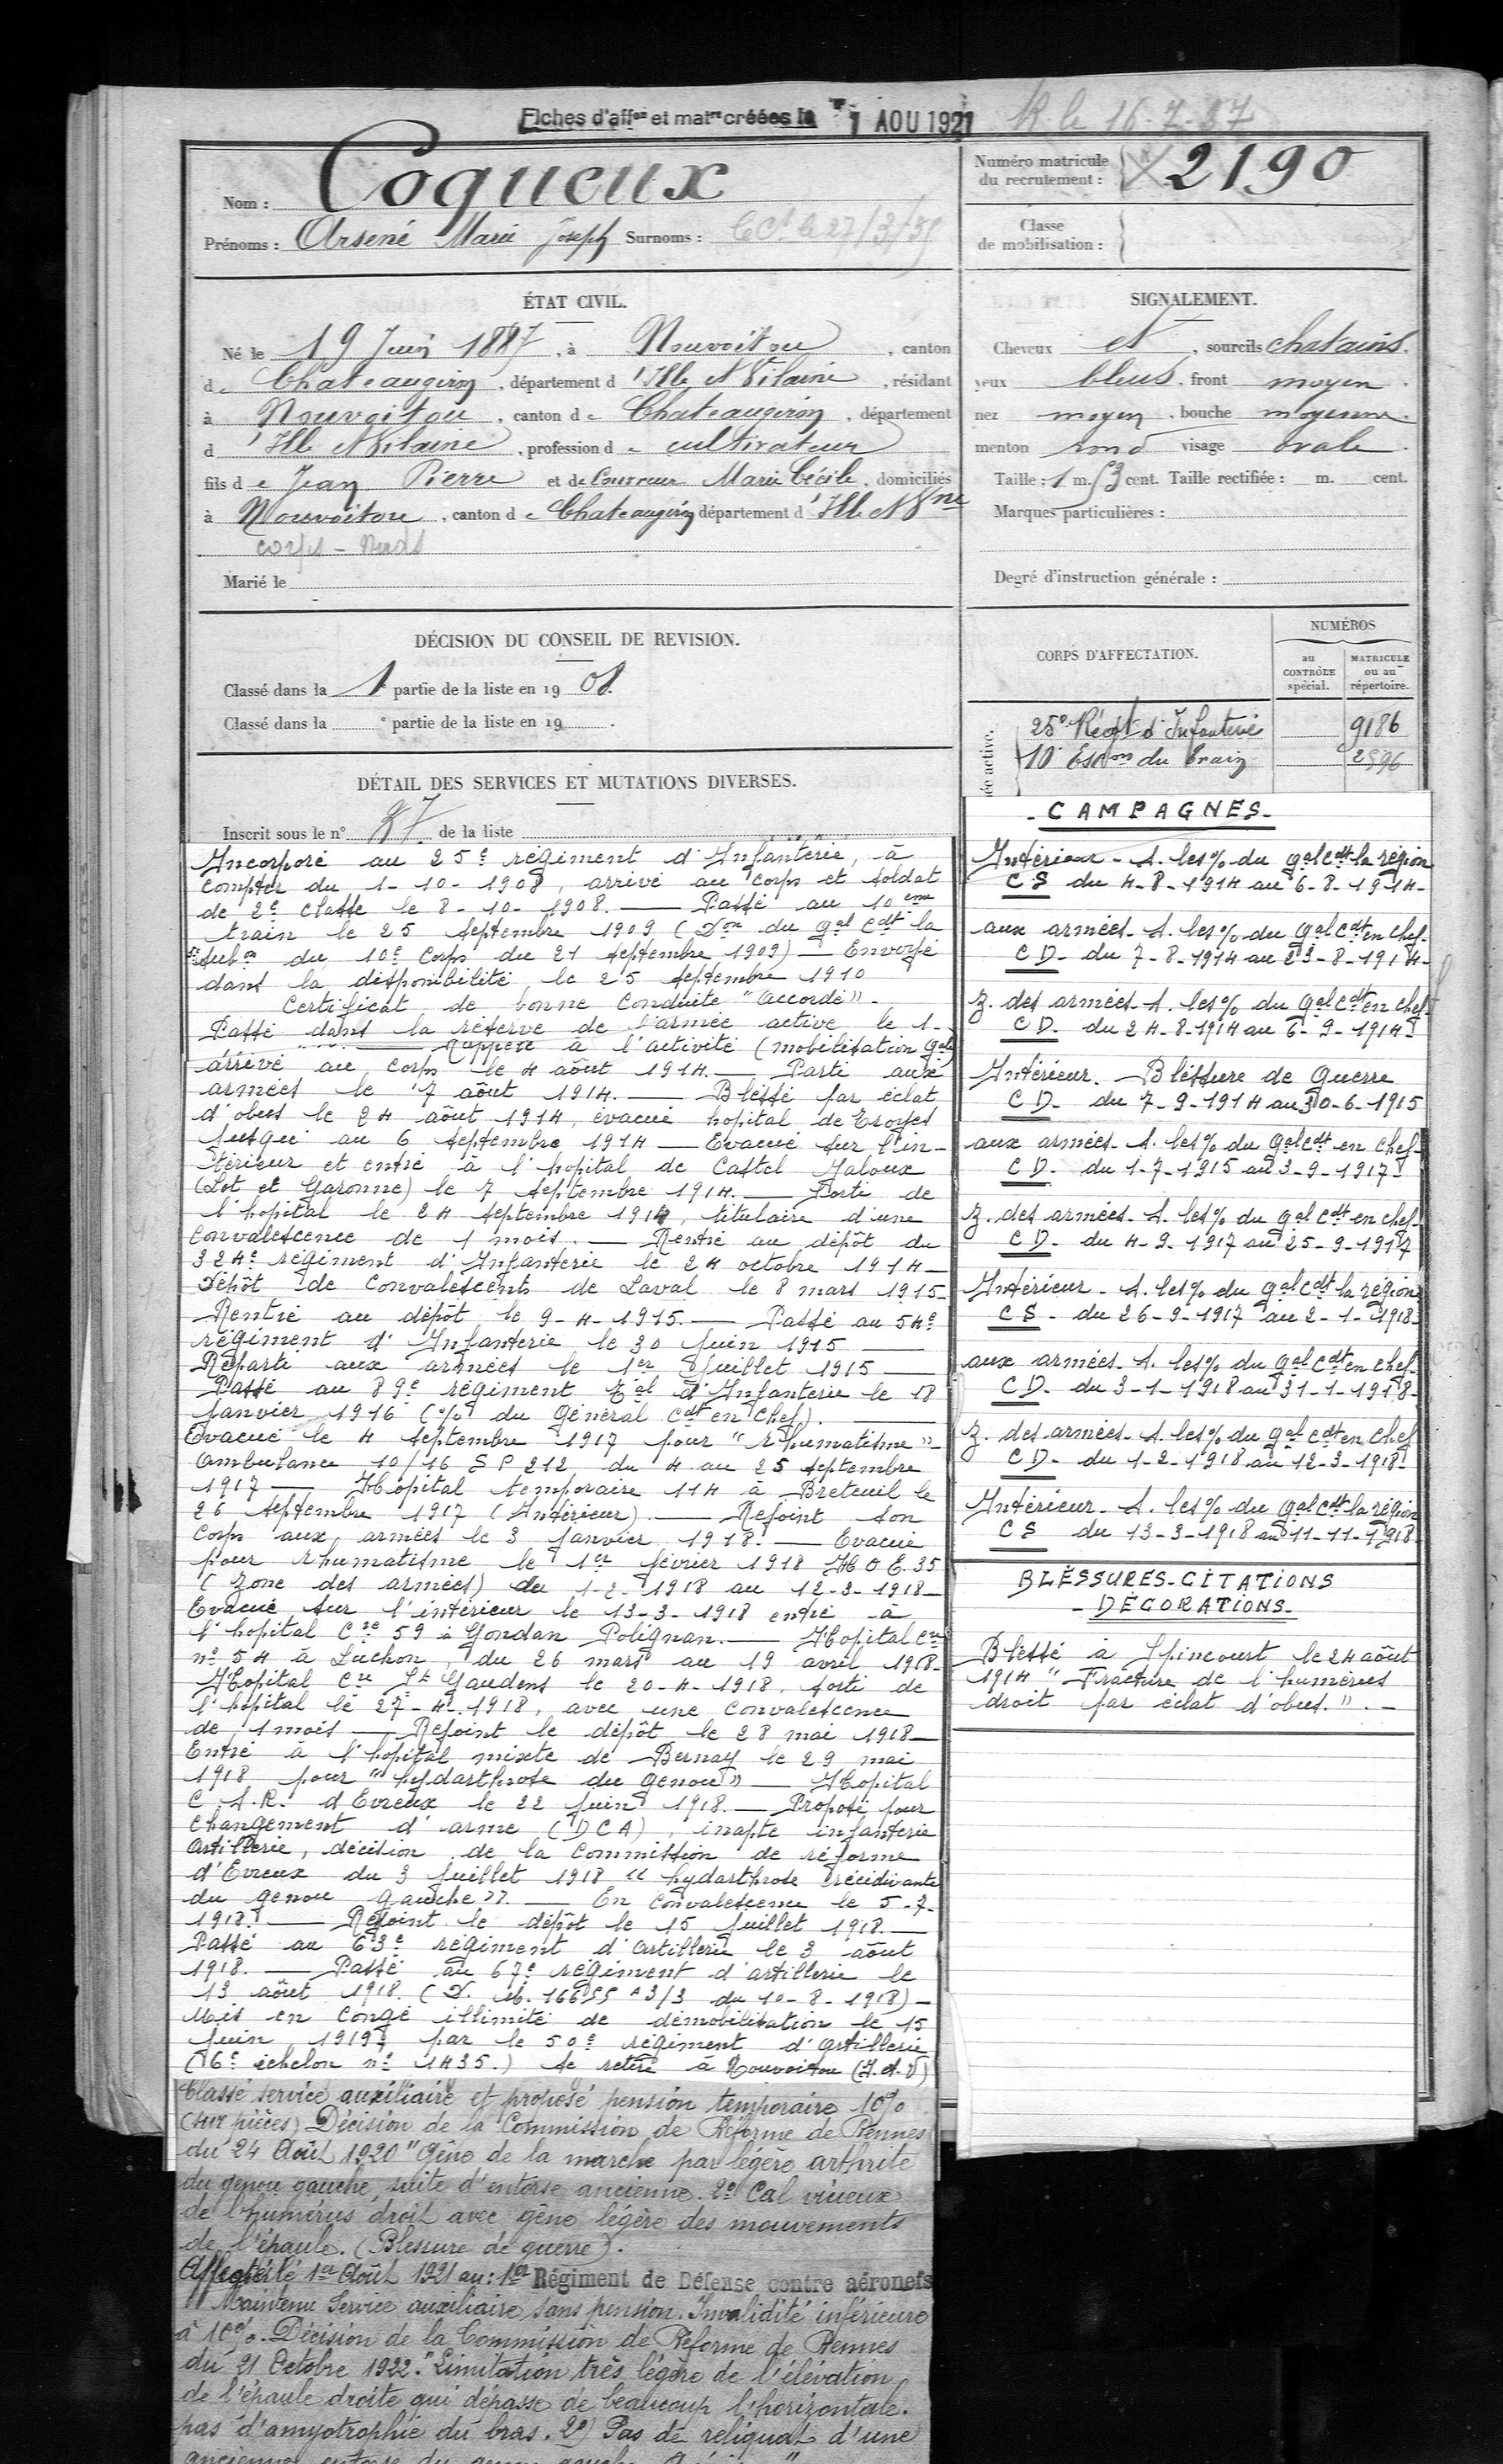 Fiches d'affon et matre créées le 1 AOU 1921 R. le 16-7-37
Nom : Coqueux
Prénoms : Arsène Marie Joseph Surnoms :
Numéro matricule du recrutement : 2190
Classe de mobilisation :
ÉTAT CIVIL.
Né le 19 Juin 1887, à Nouvoitou, canton
de Chateaugiron, département d'Ille et Vilaine, résidant
à Nouvoitou, canton de Chateaugiron, département
d'Ille et Vilaine, profession de cultivateur
fils de Jean Pierre et de Couvreur Marie Cécile, domiciliés
à Nouvoitou, canton de Chateaugiron département d'Ille et Vne
corps-Nuds
Marié le
SIGNALEMENT.
Cheveux et, sourcils chatains.
yeux bleus, front moyen.
nez moyen, bouche moyenne.
menton rond visage ovale.
Taille : 1 m. 53 cent. Taille rectifiée : m. cent.
Marques particulières :
Degré d'instruction générale :
DÉCISION DU CONSEIL DE REVISION.
Classé dans la 1 partie de la liste en 1908.
Classé dans la e partie de la liste en 19 .
CORPS D'AFFECTATION.
NUMÉROS
au CONTRÔLE spécial.
MATRICULE ou au répertoire.
25e Régt d'Infanterie 9186
10e Escon du Train 2596
DÉTAIL DES SERVICES ET MUTATIONS DIVERSES.
Inscrit sous le n° 37 de la liste
Incorporé au 25e régiment d'Infanterie, à
compter du 1-10-1908, arrivé au corps et soldat
de 2e classe le 8-10-1908. — Passé au 10eme
train le 25 septembre 1909 (Don du gal cdt la
subon du 10e corps du 21 septembre 1909) — Envoyé
dans la disponibilité le 25 septembre 1910
Certificat de bonne conduite "accordé".
Passé dans la réserve de l'armée active le 1-
— Rappelé à l'activité (mobilisation gale)
arrivé au corps le 4 août 1914. — Parti aux
armées le 7 août 1914. — Blessé par éclat
d'obus le 24 août 1914, évacué hopital de Troyes
jusque au 6 septembre 1914 — Evacué sur l'in-
térieur et entré à l'hopital de Castel Jaloux
(Lot et Garonne) le 7 septembre 1914. — Sorti de
l'hopital le 24 septembre 1914, titulaire d'une
convalescence de 1 mois. — Rentré au dépôt du
324e régiment d'Infanterie le 24 octobre 1914 —
Dépôt de convalescents de Laval le 8 mars 1915 —
Rentré au dépôt le 9-4-1915. — Passé au 54e
régiment d'Infanterie le 30 juin 1915 —
Reparti aux armées le 1er juillet 1915 —
Passé au 89e régiment Tal d'Infanterie le 18
janvier 1916 (% du Général Cdt en Chef). —
Evacué le 4 septembre 1917 pour "rhumatisme" —
Ambulance 10/16 S P 212 du 4 au 25 septembre
1917 — Hôpital temporaire 114 à Breteuil le
26 septembre 1917 (Intérieur) — Rejoint son
corps aux armées le 3 janvier 1918. — Evacué
pour rhumatisme le 1er février 1918 H O E 35
(zone des armées) du 1-2-1918 au 12-3-1918 —
Evacué sur l'intérieur le 13-3-1918 entré à
l'hopital Cre 59 à Gondan Polignan. — Hopital Cre
n° 54 à Luchon, du 26 mars au 19 avril 1918 —
Hopital Cre St Gaudens le 20-4-1918, sorti de
l'hôpital le 27-4-1918, avec une convalescence
de 1 mois — Rejoint le dépôt le 28 mai 1918 —
Entré à l'hôpital mixte de Bernay le 29 mai
1918 pour "hydarthrose du genou" — Hopital
C.A.R. d'Evreux le 22 juin 1918. — Proposé pour
changement d'arme (DCA), inapte infanterie
Artillerie, décision de la commission de réforme
d'Evreux du 3 juillet 1918 "hydarthrose récidivante
du genou gauche". — En convalescence le 5-7-
1918. — Rejoint le dépôt le 15 juillet 1918. —
Passé au 63e régiment d'artillerie le 3 août
1918. — Passé au 67e régiment d'artillerie le
13 août 1918. (D. M. 16655 3/3 du 10-8-1918) —
Mis en congé illimité de démobilisation le 15
juin 1919, par le 50e régiment d'Artillerie
(6e échelon n° 1435.) se retire à Nouvoitou (I.&.V)
Classé service auxiliaire et proposé pension temporaire 10%
(sur pièces) Décision de la Commission de Réforme de Rennes
du 24 Août 1920 "Gêne de la marche par légère arthrite
du genou gauche, suite d'entorse ancienne. 2° Cal vicieux
de l'humérus droit avec gêne légère des mouvements
de l'épaule. (Blessure de guerre).
Affecté le 1er Août 1921 au : 1er Régiment de Défense contre aéronefs
Maintenu Service auxiliaire sans pension. Invalidité inférieure
à 10%. Décision de la Commission de Réforme de Rennes
du 21 Octobre 1922. "Limitation très légère de l'élévation
de l'épaule droite qui dépasse de beaucoup l'horizontale.
pas d'amyotrophie du bras. 2°) Pas de reliquat d'une
ancienne entorse du genou gauche
- CAMPAGNES -
Intérieur - S. les % du gal cdt la région
CS du 4-8-1914 au 6-8-1914 -
aux armées - S. les % du gal cdt en chef -
CD - du 7-8-1914 au 23-8-1914 -
Z. des armées - S. les % du gal cdt en chef -
CD - du 24-8-1914 au 6-9-1914
Intérieur. - Blessure de Guerre
CD - du 7-9-1914 au 30-6-1915
aux armées - S. les % du gal cdt en chef -
CD - du 1-7-1915 au 3-9-1917
Z. des armées - S. les % du gal cdt en chef -
CD - du 4-9-1917 au 25-9-1917
Intérieur - S. les % du gal cdt la région
CS - du 26-9-1917 au 2-1-1918 -
aux armées - S. les % du gal cdt en chef -
CD - du 3-1-1918 au 31-1-1918 -
Z. des armées - S. les % du gal cdt en chef
CD - du 1-2-1918 au 12-3-1918 -
Intérieur - S. les % du gal cdt la région
CS du 13-3-1918 au 11-11-1918 -
BLESSURES - CITATIONS
- DECORATIONS -
Blessé à Spincourt le 24 août
1914 "Fracture de l'humérus
droit par éclat d'obus."